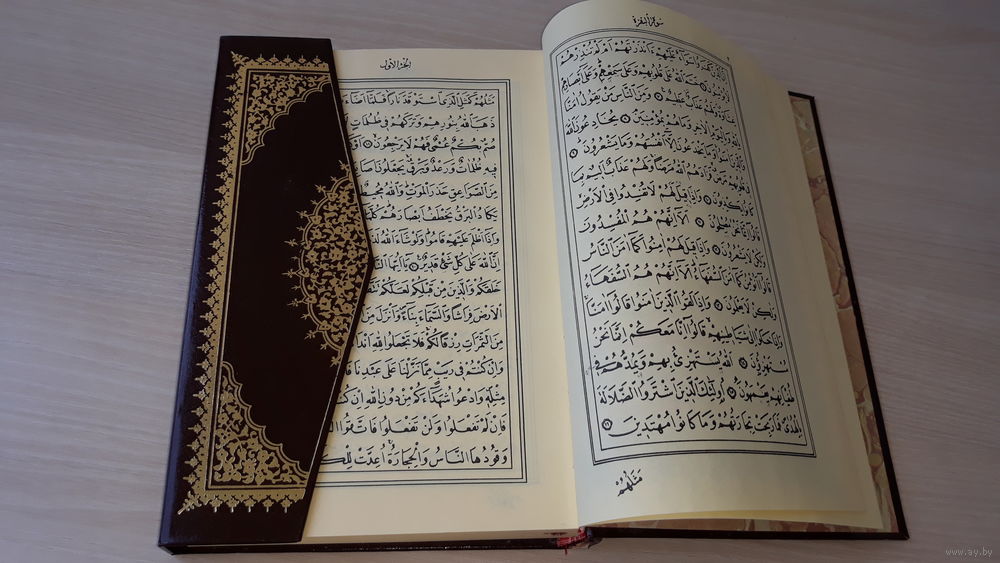 سورة البقرة
اِنَّ الَّذِينَ كَفَرُوا سَوَاءٌ عَلَيْهِمْ ءَاَنْذَرْتَهُمْ اَمْ لَمْ تُنْذِرْهُمْ
لَا يُؤْمِنُونَ خَتَمَ اللّٰهُ عَلٰى قُلُوبِهِمْ وَعَلٰى سَمْعِهِمْ وَعَلٰى اَبْصَارِهِمْ
غِشَاوَةٌ وَلَهُمْ عَذَابٌ عَظِيمٌ وَمِنَ النَّاسِ مَنْ يَقُولُ اٰمَنَّا
بِاللّٰهِ وَبِالْيَوْمِ الْاٰخِرِ وَمَا هُمْ بِمُؤْمِنِينَ يُخَادِعُونَ اللّٰهَ
وَالَّذِينَ اٰمَنُوا وَمَا يَخْدَعُونَ اِلَّا اَنْفُسَهُمْ وَمَا يَشْعُرُونَ
فِي قُلُوبِهِمْ مَرَضٌ فَزَادَهُمُ اللّٰهُ مَرَضًا وَلَهُمْ عَذَابٌ اَلِيمٌ بِمَا
كَانُوا يَكْذِبُونَ وَاِذَا قِيلَ لَهُمْ لَا تُفْسِدُوا فِي الْاَرْضِ
قَالُوا اِنَّمَا نَحْنُ مُصْلِحُونَ اَلَا اِنَّهُمْ هُمُ الْمُفْسِدُونَ
وَلٰكِنْ لَا يَشْعُرُونَ وَاِذَا قِيلَ لَهُمْ اٰمِنُوا كَمَا اٰمَنَ النَّاسُ
قَالُوا اَنُؤْمِنُ كَمَا اٰمَنَ السُّفَهَاءُ اَلَا اِنَّهُمْ هُمُ السُّفَهَاءُ
وَلٰكِنْ لَا يَعْلَمُونَ وَاِذَا لَقُوا الَّذِينَ اٰمَنُوا قَالُوا اٰمَنَّا
وَاِذَا خَلَوْا اِلٰى شَيَاطِينِهِمْ قَالُوا اِنَّا مَعَكُمْ اِنَّمَا نَحْنُ
مُسْتَهْزِؤُنَ اَللّٰهُ يَسْتَهْزِئُ بِهِمْ وَيَمُدُّهُمْ فِي
طُغْيَانِهِمْ يَعْمَهُونَ اُولٰئِكَ الَّذِينَ اشْتَرَوُا الضَّلَالَةَ
بِالْهُدٰى فَمَا رَبِحَتْ تِجَارَتُهُمْ وَمَا كَانُوا مُهْتَدِينَ
مَثَلُهُمْ
الجزء الاول
مَثَلُهُمْ كَمَثَلِ الَّذِي اسْتَوْقَدَ نَارًا فَلَمَّا اَضَاءَتْ
ذَهَبَ اللّٰهُ بِنُورِهِمْ وَتَرَكَهُمْ فِي ظُلُمَاتٍ
صُمٌّ بُكْمٌ عُمْيٌ فَهُمْ لَا يَرْجِعُونَ اَوْ
فِيهِ ظُلُمَاتٌ وَرَعْدٌ وَبَرْقٌ يَجْعَلُونَ
مِنَ الصَّوَاعِقِ حَذَرَ الْمَوْتِ وَاللّٰهُ مُحِيطٌ
يَكَادُ الْبَرْقُ يَخْطَفُ اَبْصَارَهُمْ
وَاِذَا اَظْلَمَ عَلَيْهِمْ قَامُوا وَلَوْ شَاءَ اللّٰهُ
اِنَّ اللّٰهَ عَلٰى كُلِّ شَيْءٍ قَدِيرٌ يَا اَيُّهَا
خَلَقَكُمْ وَالَّذِينَ مِنْ قَبْلِكُمْ لَعَلَّكُمْ
الْاَرْضَ فِرَاشًا وَالسَّمَاءَ بِنَاءً وَاَنْزَلَ مِنَ
مِنَ الثَّمَرَاتِ رِزْقًا لَكُمْ فَلَا تَجْعَلُوا لِلّٰهِ
وَاِنْ كُنْتُمْ فِي رَيْبٍ مِمَّا نَزَّلْنَا عَلٰى عَبْدِنَا
مِثْلِهِ وَادْعُوا شُهَدَاءَكُمْ مِنْ دُونِ اللّٰهِ اِنْ
فَاِنْ لَمْ تَفْعَلُوا وَلَنْ تَفْعَلُوا فَاتَّقُوا
وَقُودُهَا النَّاسُ وَالْحِجَارَةُ اُعِدَّتْ
www.ay.by